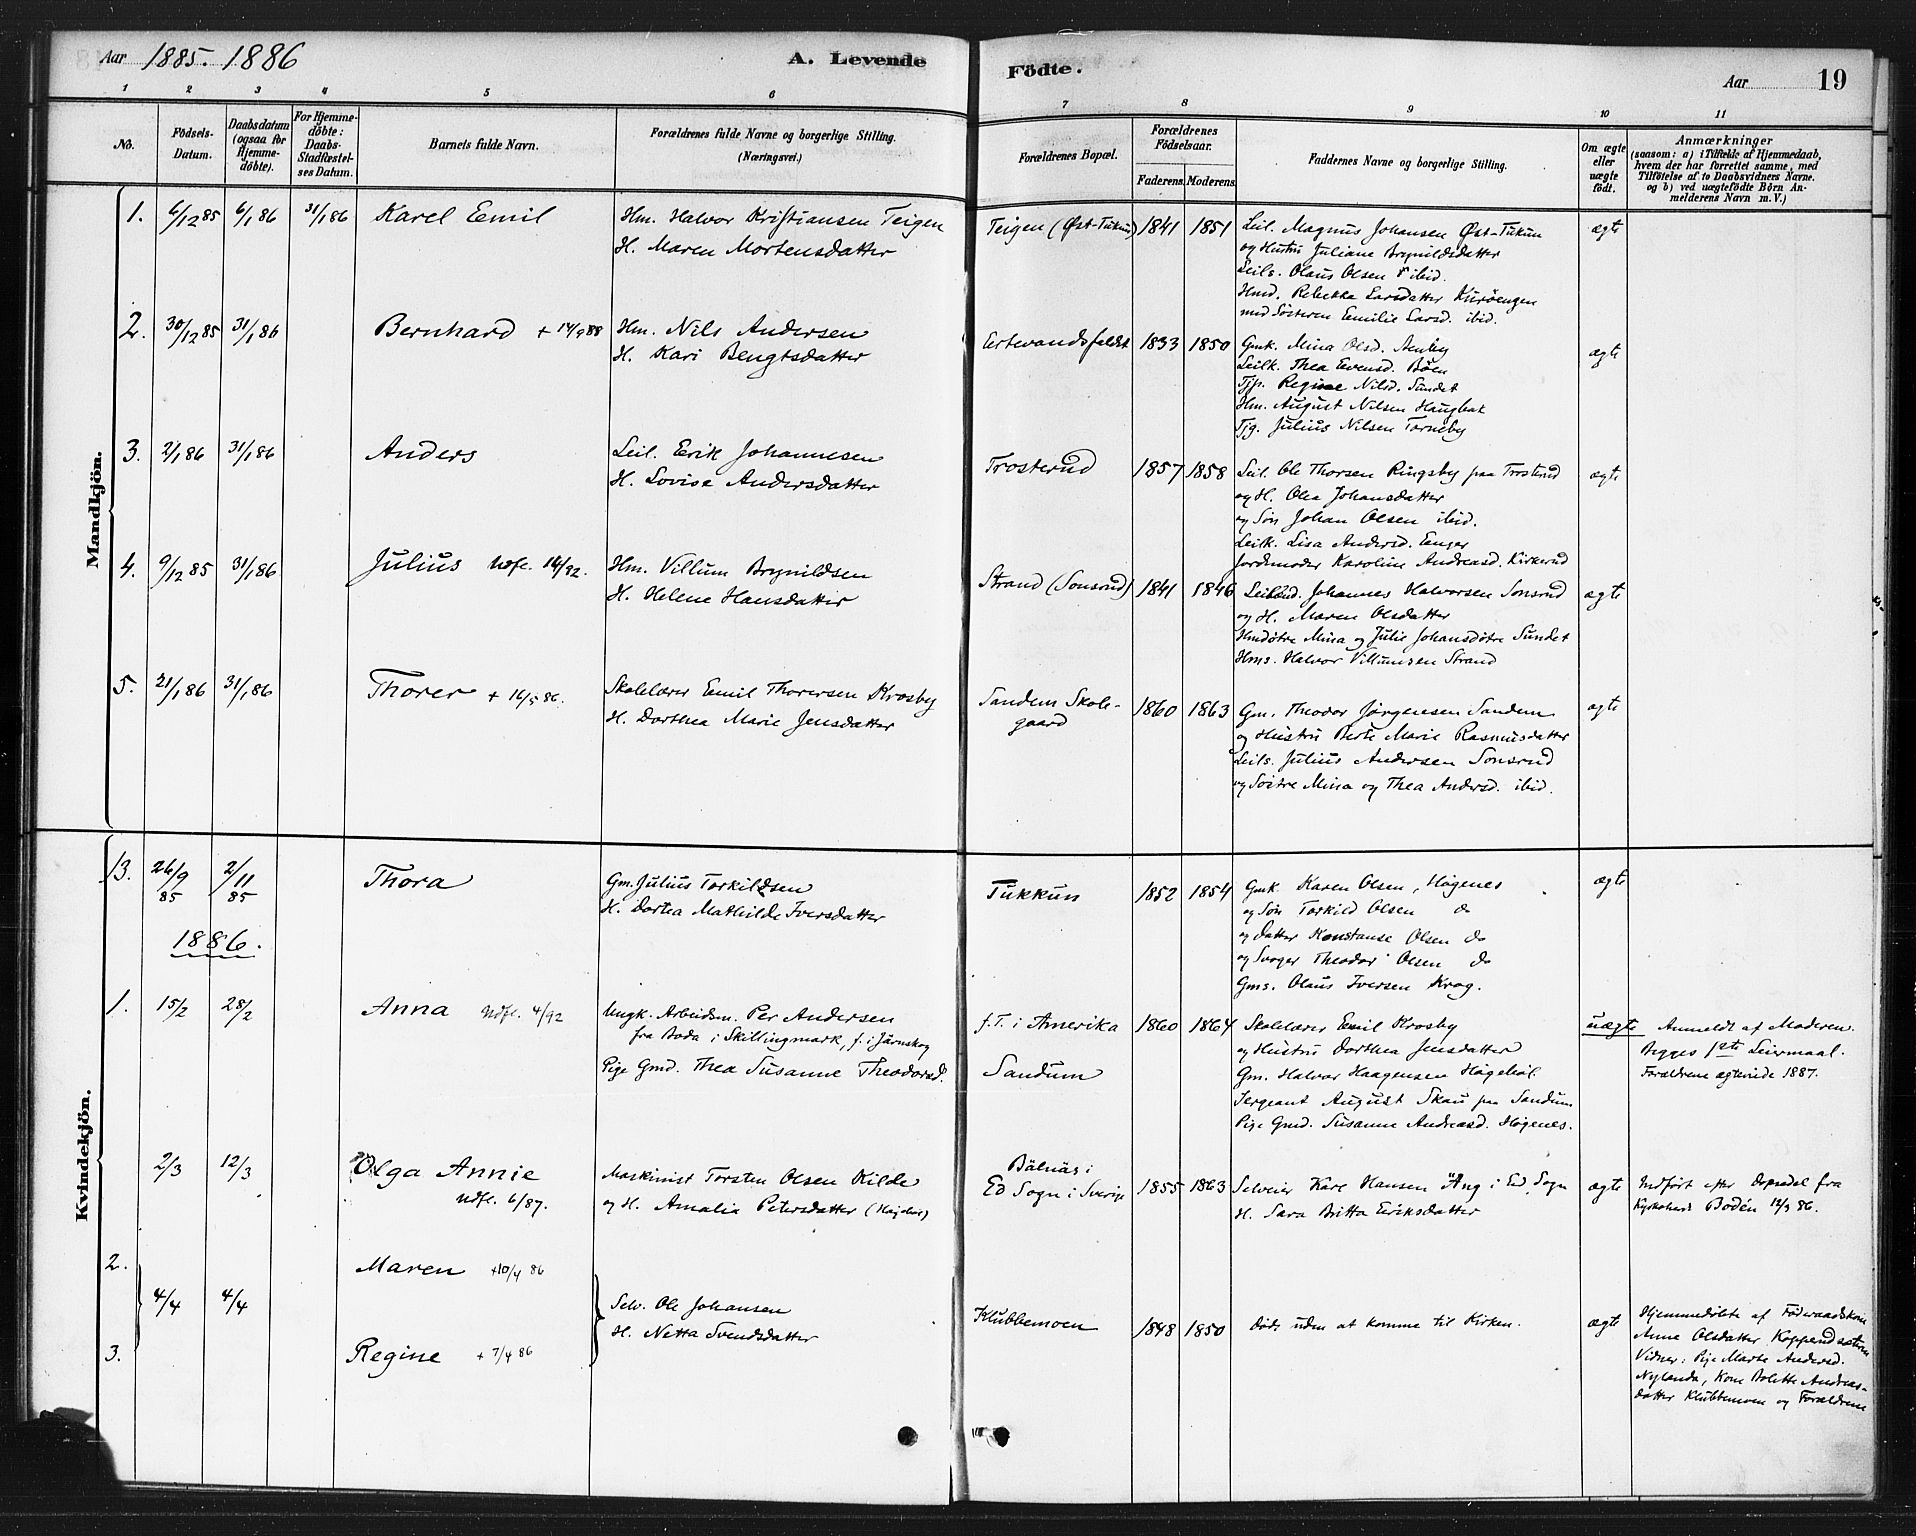 Aar 1885. 1886
A. Levende
Födte.
Aar 19
1 2 3 4 5 6 7 8 9 10 11
No.
Födsels-
Datum.
Daabsdatum
(ogsaa for
Hjemme-
döbte).
For Hjemme-
döbte:
Daabs-
Stadfæstel-
ses Datum.
Barnets fulde Navn.
Forældrenes fulde Navne og borgerlige Stilling.
(Næringsvei.)
Forældrenes Bopæl.
Forældrenes
Födselsaar.
Faderens. Moderens.
Faddernes Navne og borgerlige Stilling.
Om ægte
eller
uægte
födt.
Anmærkninger
(saasom: a) i Tilfælde af Hjemmedaab,
hvem der har forrettet samme, med
Tilföielse af to Daabsvidners Navne.
og b) ved uægtefödte Börn An-
melderens Navn m. V.)
Mandkjön.
1. 6/12 85 6/1 86 31/1 86 Karel Eemil
Hm. Halvor Kristiansen Teigen
H. Maren Mortensdatter
Teigen (Øst-Tukun) 1841 1851
Leil. Magnus Johansen Øst-Tukun
og Hustru Juliane Brynildsdatter
Leils. Olaus Olsen ibid.
Hmd. Rebekka Larsdatter Kurøengen
med Søsteren Emilie Larsd. ibid.
ægte
2. 30/12 85 31/1 86 Bernhard + 14/9 88
Hm. Nils Andersen
H. Kari Bengtsdatter
1833 1850
Gmk. Mina Olsd.
Leilk. Thea Evensd. Bøen
Tjp. Regine Nilsd. Sandet
Hm. August Nilsen
Tjg. Julius Nilsen Torneby
ægte
3. 2/1 86 31/1 86 Anders
Leil. Eerik Johannesen
H. Lovise Andersdatter
Trosterud 1857 1858
Leil. Ole Thorsen Ringsby paa Trosterud
og H. Olea Johansdatter
og Søn Johan Olsen ibid.
Leilk. Lisa Andersd. Eenger
Jordemoder Karoline Andreasd. Kirkerud
ægte
4. 9/12 85 31/1 86 Julius Udfl. 14/92.
Hm. Villum Brynildsen
H. Helene Hansdatter
Strand (Sonsrud) 1841 1846
Johannes Halvorsen Sonsrud
og H. Maren Olsdatter
Hmdøtre Mina og Julie Johansdøtre Sundet
Hms. Halvor Villumsen Strand
ægte
5. 21/1 86 31/1 86 Thorer + 16/5 86.
Skolelærer Eemil Thorersen Krosby
H. Dorthea Marie Jensdatter
Sandem Skole-
gaard
1860 1863
Gm. Theodor Jørgensen Sandem
og Hustru Berte Marie Rasmusdatter
Leils. Julius Andersen Sonsrud
og Søstre Mina og Thea Andersd. ibid.
ægte
Kvindekjön.
13. 26/9 85 2/11 85 Thora
Gm. Julius Torkildsen
H. Dortea Mathilde Iversdatter
Tukkun 1852 1854
Gmk. Karen Olsen, Høgenes
og Søn Torkild Olsen do
og Datter Konstanse Olsen do
og Svoger Theodor Olsen do
Gms. Olaus Iversen Krog.
ægte
1886.
1. 15/2 28/2 Anna Udfl. 4/92
Ungk. Arbeidsm. Per Andersen
fra Boda i Skillingmark, f. i Järnskog
Pige Gmd. Thea Susanne Theodorsd.
f.T. i Amerika
Sandum
1860 1864
Skolelærer Eemil Krosby
og Hustru Dorthea Jensdatter
Gm. Halvor Haagensen Høgehol.
Sergeant August Skau paa Sandum
Pige Gmd. Susanne Andreasd. Høgenes.
uægte
Anmeldt af Moderen.
Begges 1ste Leiermaal.
Forældrene ægteviede 1887.
2/3 12/3 Olga Annie
Udfl. 6/87.
Maskinist Torsten Olsen Kilde
og H. Amalia Petersdatter
Bälnäs i
Ed Sogn i Sverige 1855 1863
Selveier Karl Hansen Äng i Ed Sogn
H. Sara Britta Eeriksdatter
ægte
Indført efter Dopsedel fra
Kyrkoherde Bodén 12/3 86.
2. Maren +10/4 86
4/4 4/4
Selv. Ole Johansen
H. Netta Svendsdatter
Klubbemoen 1848 1850
Døde uden at komme til Kirken.
ægte
3. Regine + 7/4 86
Hjemmedøbte af Föderaadskone
Anne Olsdatter
Vidner: Pige Marte Andersd.
Nylende, Kone Bolette Andreas-
datter Klubbemoen og Forældrene